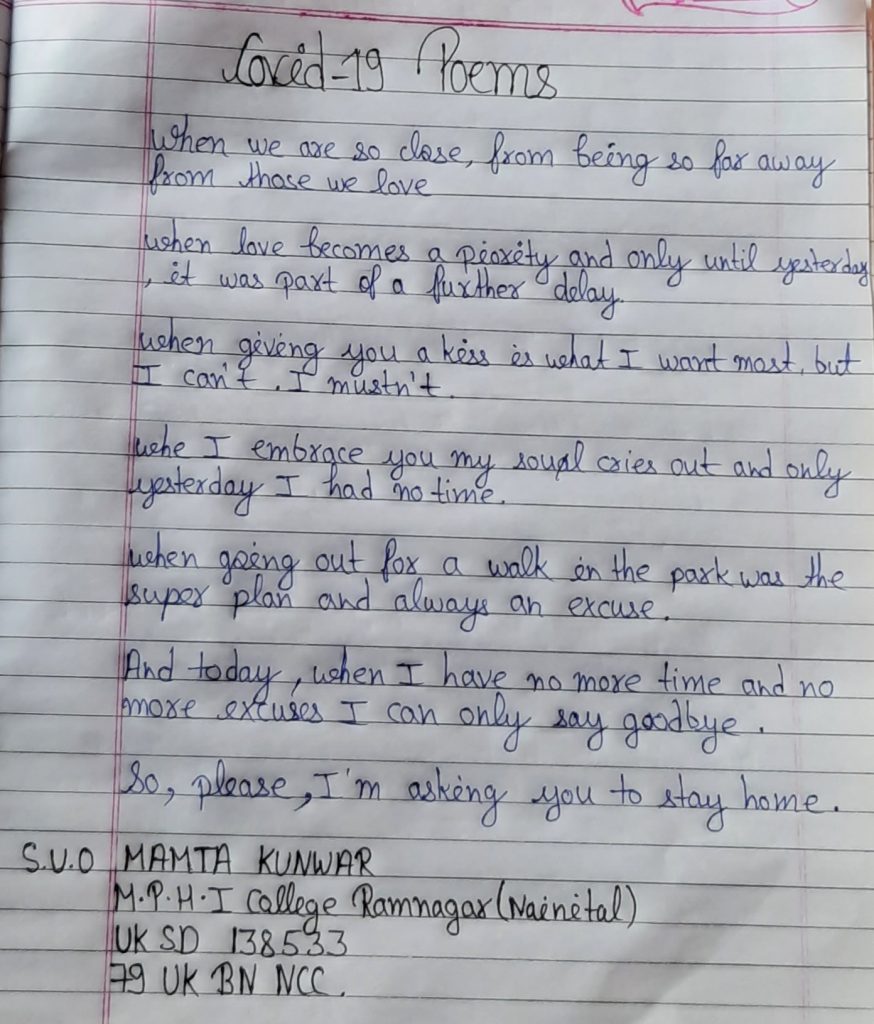 Covid-19 Poems
When we are so close, from being so far away
from those we love
when love becomes a piority and only until yesterday
, it was part of a further delay.
when giving you a kiss is what I want most, but
I can't. I mustn't.
whe I embrace you my soupl cries out and only
yesterday I had no time.
when going out for a walk in the park was the
super plan and always an excuse.
And today, when I have no more time and no
more excuses I can only say goodbye.
So, please, I'm asking you to stay home.
S.U.O MAMTA KUNWAR
M.P.H.I College Ramnagar (Nainital)
UK SD 138533
79 UK BN NCC.